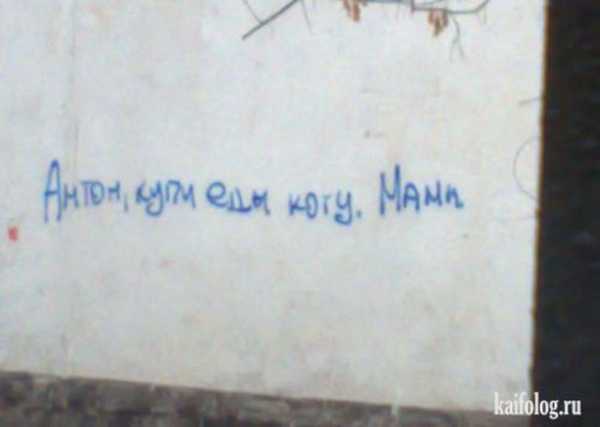 Антон, купи еды коту. Мама
kaifolog.ru